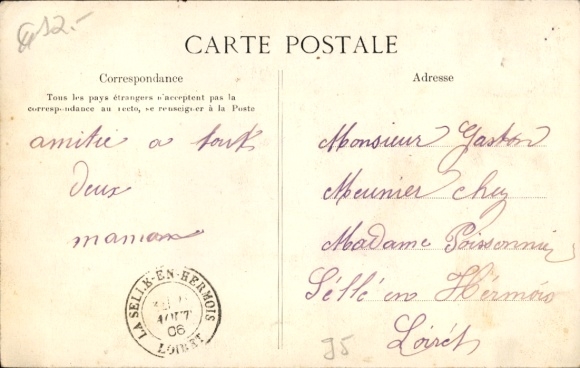 12.-
CARTE POSTALE
Correspondance
Tous les pays étrangers n'acceptent pas la
correspondance au recto, se renseigner à la Poste
amitié a tout
deux
maman
Adresse
Monsieur Gaston
Meunier chez
Madame Poissonnier
Séllé en Hérmois
Loirét
LA SELLE-EN-HERMOIS
AOUT
06
LOIRET
95